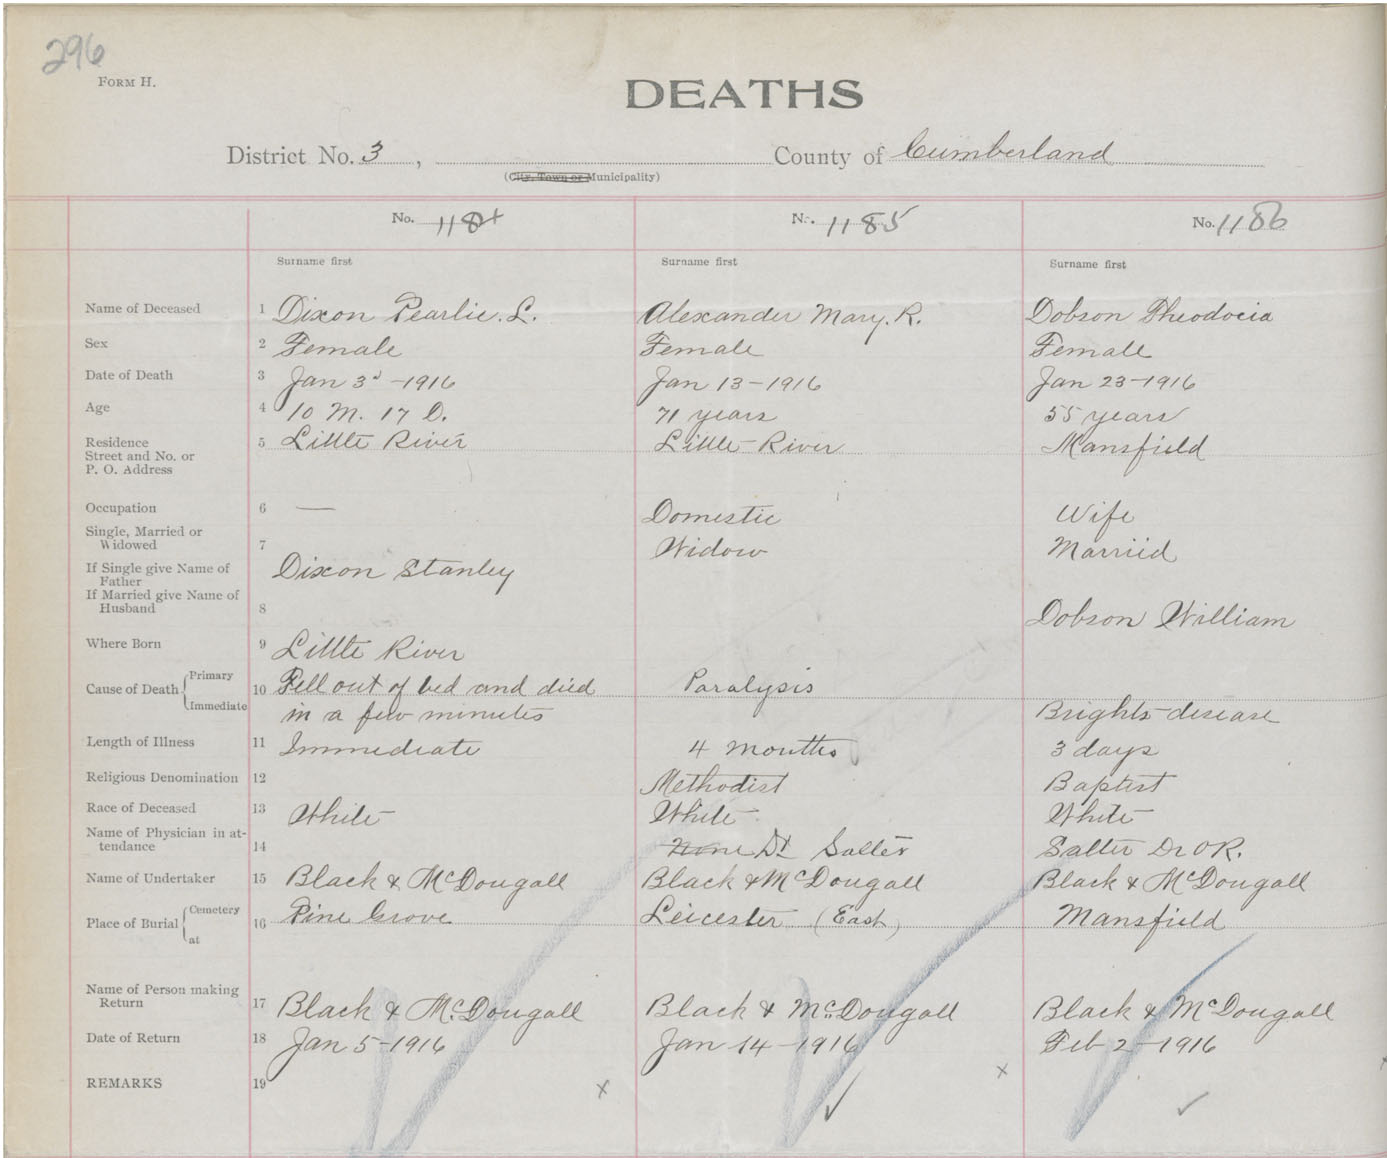 296
FORM H.
DEATHS
District No. 3 , County of Cumberland
(City, Town or Municipality)
No. 1184 No. 1185 No. 1186
Surname first Surname first Surname first
Name of Deceased 1 Dixon Pearlie. L. Alexander Mary. R. Dobson Theodocia
Sex 2 Female Female Female
Date of Death 3 Jan 3d - 1916 Jan 13 - 1916 Jan 23 - 1916
Age 4 10 M. 17 D. 71 years 55 years
Residence 5 Little River Little River Mansfield
Street and No. or
P. O. Address
Occupation 6 — Domestic Wife
Single, Married or
Widowed 7 Widow Married
If Single give Name of
Father Dixon Stanley
If Married give Name of
Husband 8 Dobson William
Where Born 9 Little River
Cause of Death { Primary 10 Fell out of bed and died Paralysis
Immediate in a few minutes Brights disease
Length of Illness 11 Immediate 4 months 3 days
Religious Denomination 12 Methodist Baptist
Race of Deceased 13 White White White
Name of Physician in at-
tendance 14 None Dr Salter Salter Dr O R.
Name of Undertaker 15 Black & McDougall Black & McDougall Black & McDougall
Place of Burial { Cemetery 16 Pine Grove Leicester (East) Mansfield
at
Name of Person making
Return 17 Black & McDougall Black & McDougall Black & McDougall
Date of Return 18 Jan 5 - 1916 Jan 14 - 1916 Feb 2 - 1916
REMARKS 19 x x